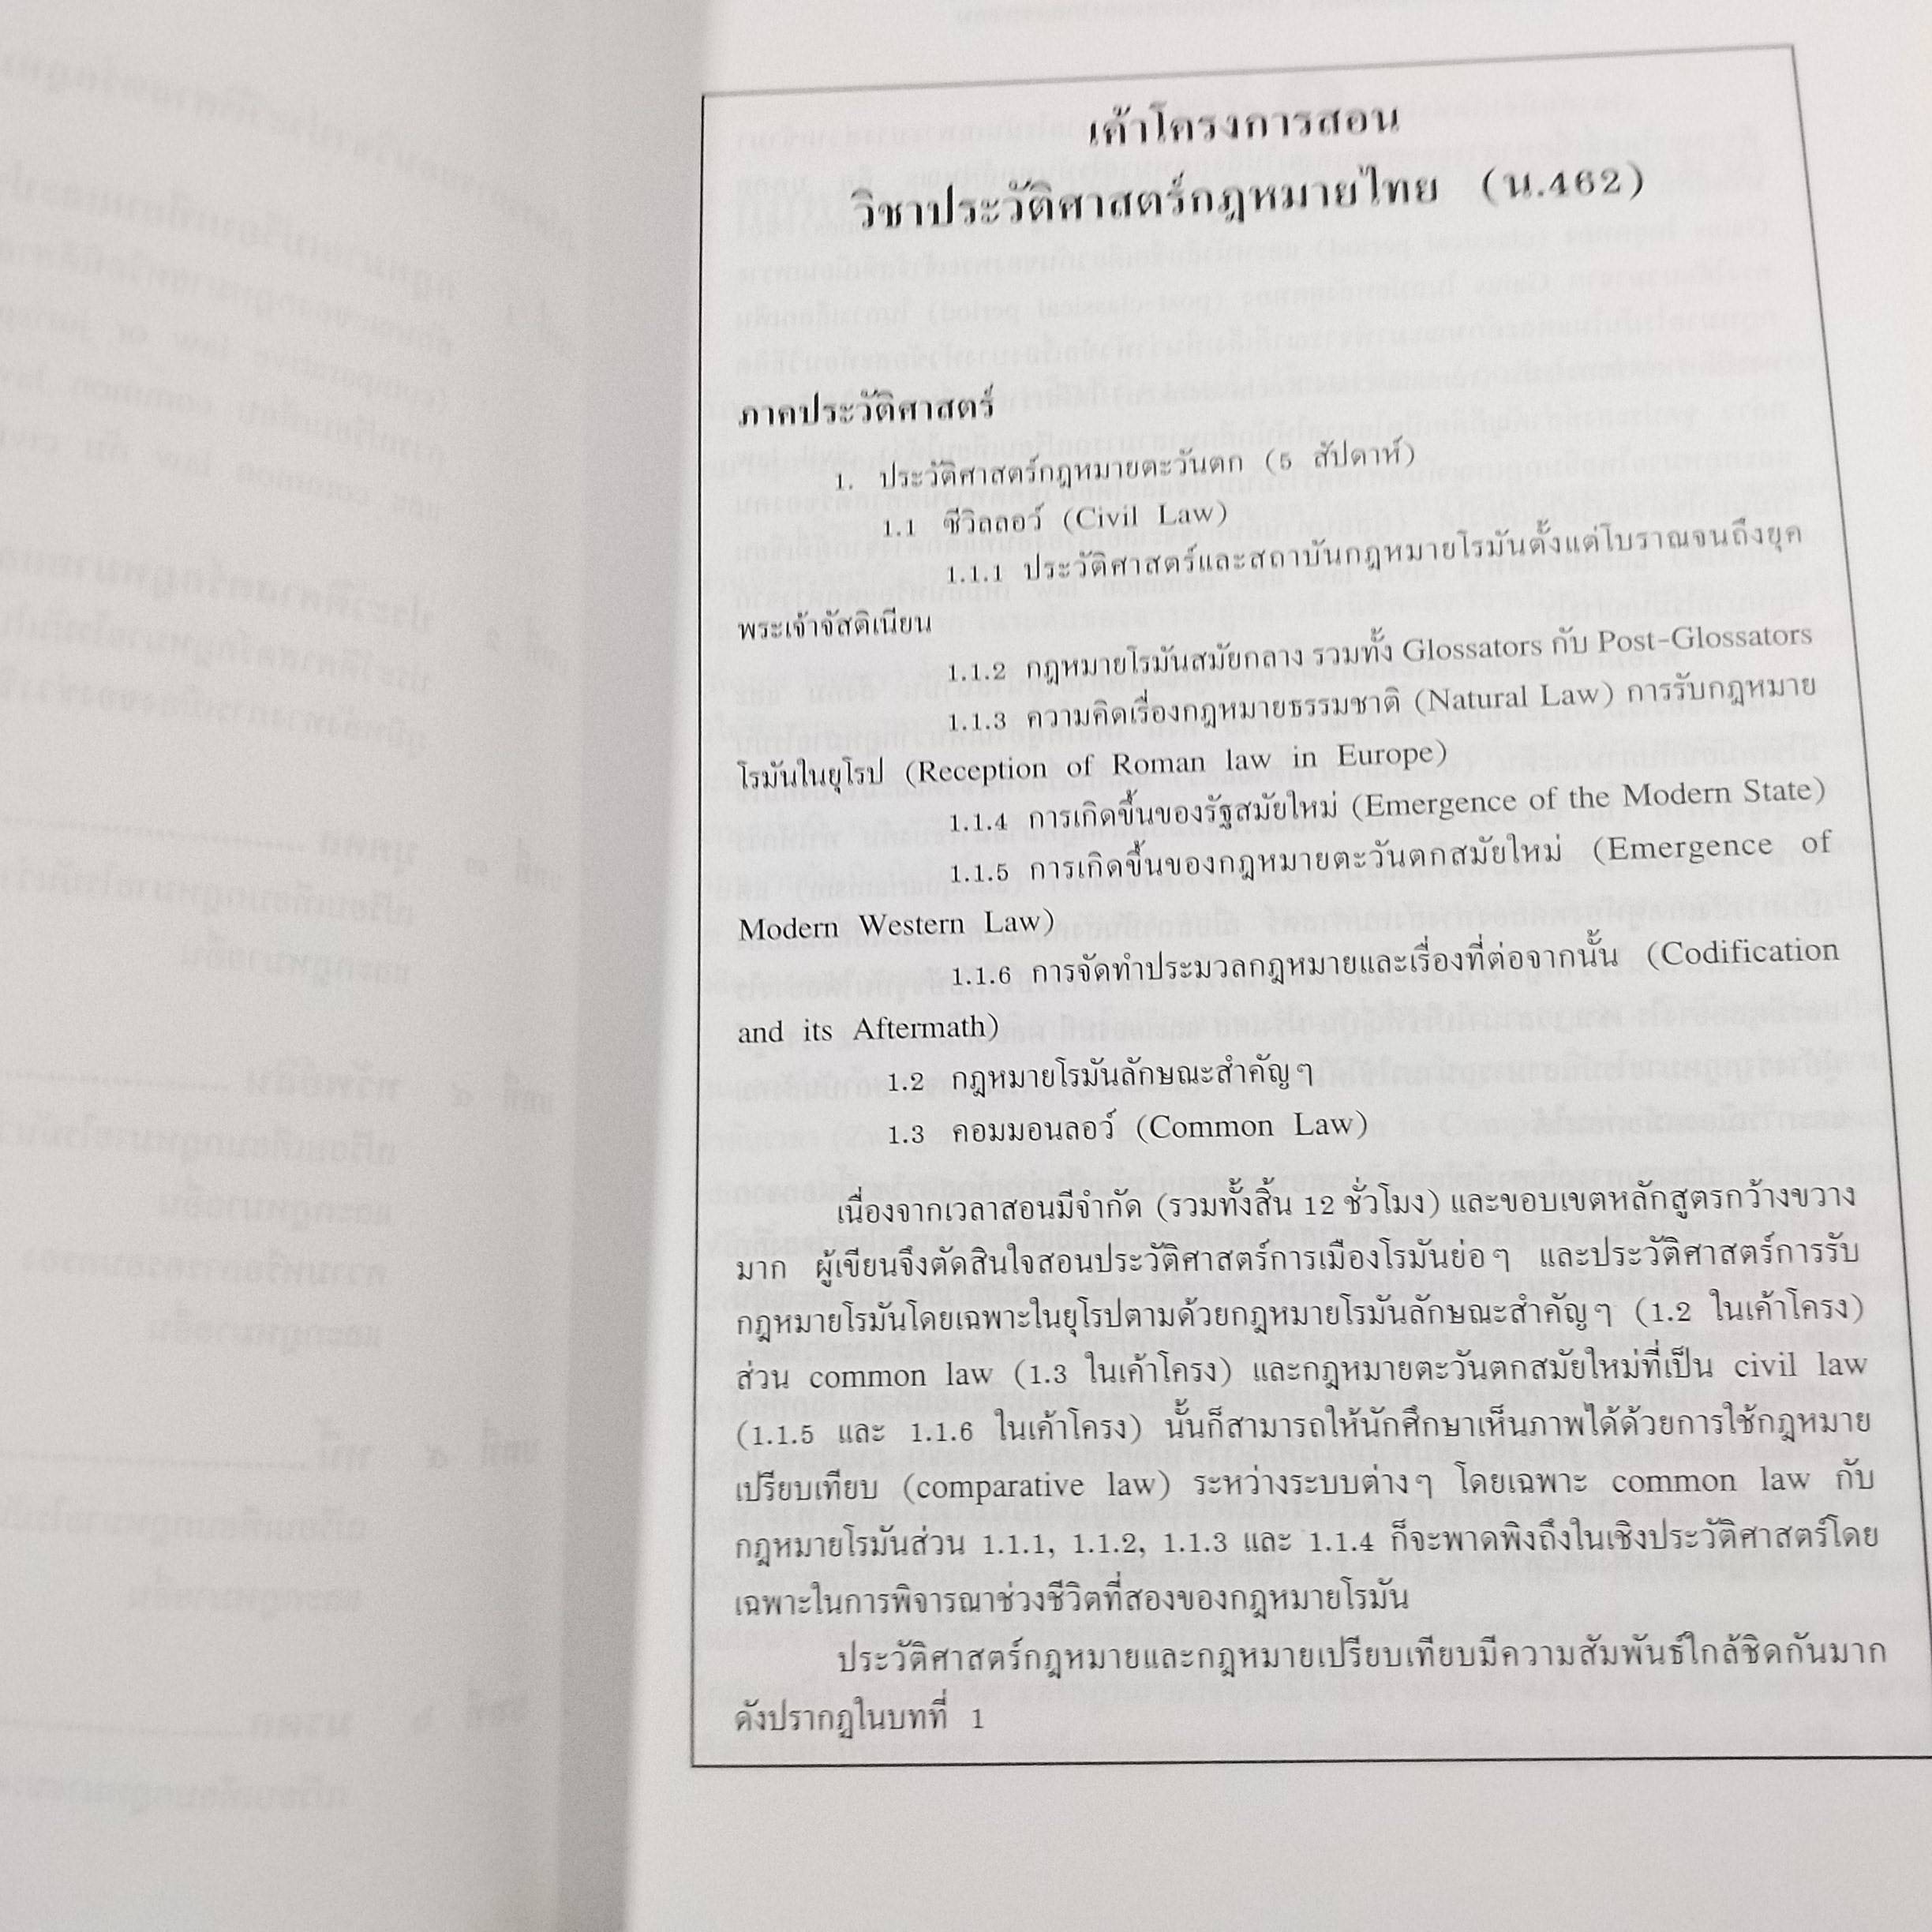 เค้าโครงการสอน
วิชาประวัติศาสตร์กฎหมายไทย (น.462)
ภาคประวัติศาสตร์
1. ประวัติศาสตร์กฎหมายตะวันตก (5 สัปดาห์)
1.1 ซีวิลลอว์ (Civil Law)
1.1.1 ประวัติศาสตร์และสถาบันกฎหมายโรมันตั้งแต่โบราณจนถึงยุค
พระเจ้าจัสติเนียน
1.1.2 กฎหมายโรมันสมัยกลาง รวมทั้ง Glossators กับ Post-Glossators
1.1.3 ความคิดเรื่องกฎหมายธรรมชาติ (Natural Law) การรับกฎหมาย
โรมันในยุโรป (Reception of Roman law in Europe)
1.1.4 การเกิดขึ้นของรัฐสมัยใหม่ (Emergence of the Modern State)
1.1.5 การเกิดขึ้นของกฎหมายตะวันตกสมัยใหม่ (Emergence of
Modern Western Law)
1.1.6 การจัดทำประมวลกฎหมายและเรื่องที่ต่อจากนั้น (Codification
and its Aftermath)
1.2 กฎหมายโรมันลักษณะสำคัญๆ
1.3 คอมมอนลอว์ (Common Law)
เนื่องจากเวลาสอนมีจำกัด (รวมทั้งสิ้น 12 ชั่วโมง) และขอบเขตหลักสูตรกว้างขวาง
มาก ผู้เขียนจึงตัดสินใจสอนประวัติศาสตร์การเมืองโรมันย่อๆ และประวัติศาสตร์การรับ
กฎหมายโรมันโดยเฉพาะในยุโรปตามด้วยกฎหมายโรมันลักษณะสำคัญๆ (1.2 ในเค้าโครง)
ส่วน common law (1.3 ในเค้าโครง) และกฎหมายตะวันตกสมัยใหม่ที่เป็น civil law
(1.1.5 และ 1.1.6 ในเค้าโครง) นั้นก็สามารถให้นักศึกษาเห็นภาพได้ด้วยการใช้กฎหมาย
เปรียบเทียบ (comparative law) ระหว่างระบบต่างๆ โดยเฉพาะ common law กับ
กฎหมายโรมันส่วน 1.1.1, 1.1.2, 1.1.3 และ 1.1.4 ก็จะพาดพิงถึงในเชิงประวัติศาสตร์โดย
เฉพาะในการพิจารณาช่วงชีวิตที่สองของกฎหมายโรมัน
ประวัติศาสตร์กฎหมายและกฎหมายเปรียบเทียบมีความสัมพันธ์ใกล้ชิดกันมาก
ดังปรากฏในบทที่ 1